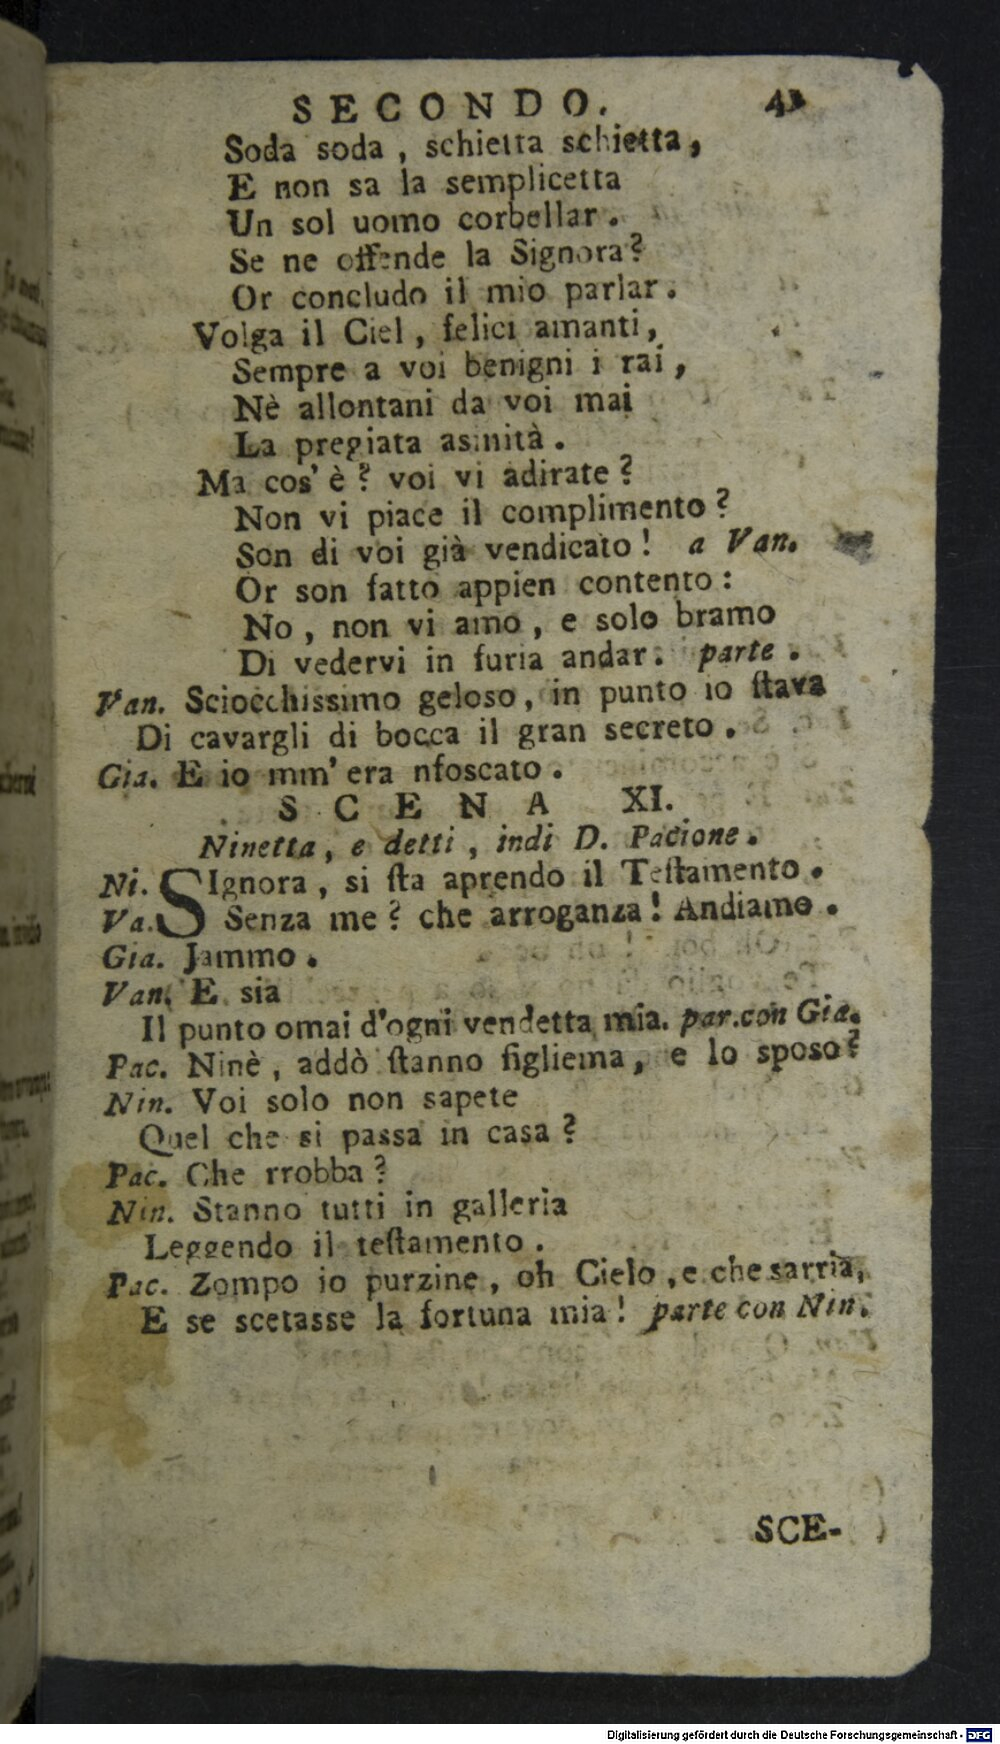 SECONDO.
Soda soda, schietta schietta,
E non sa la semplicetta
Un sol uomo corbellar.
Se ne offende la Signora?
Or concludo il mio parlar.
Volga il Ciel, felici amanti,
Sempre a voi benigni i rai,
Nè allontani da voi mai
La pregiata asinità.
Ma cos' è? voi vi adirate?
Non vi piace il complimento?
Son di voi già vendicato! a Van.
Or son fatto appien contento:
No, non vi amo, e solo bramo
Di vedervi in furia andar. parte.
Van. Sciocchissimo geloso, in punto io stava
Di cavargli di bocca il gran secreto.
Gia. E io mm' era nfoscato.
SCENA XI.
Ninetta, e detti, indi D. Pacione.
Ni. SIgnora, si sta aprendo il Testamento.
Va. Senza me? che arroganza! Andiamo.
Gia. Jammo.
Van. E sia
Il punto omai d'ogni vendetta mia. par. con Gia.
Pac. Ninè, addò stanno figliema, e lo sposo?
Nin. Voi solo non sapete
Quel che si passa in casa?
Pac. Che rrobba?
Nin. Stanno tutti in galleria
Leggendo il testamento.
Pac. Zompo io purzine, oh Cielo, e che sarrìa,
E se scetasse la fortuna mia! parte con Nin.
SCE-
Digitalisierung gefördert durch die Deutsche Forschungsgemeinschaft - DFG